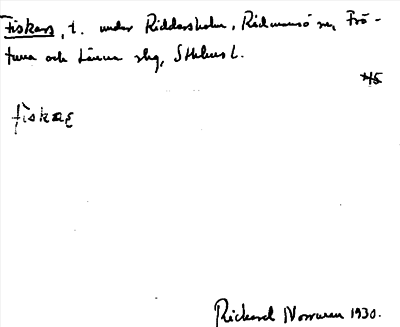 Fiskars, t. under Riddersholm, Rådmansö sn, Frö-
tuna och Länna slg, Sthlms l.
fiskaʂ
Rickard Norraren 1930.